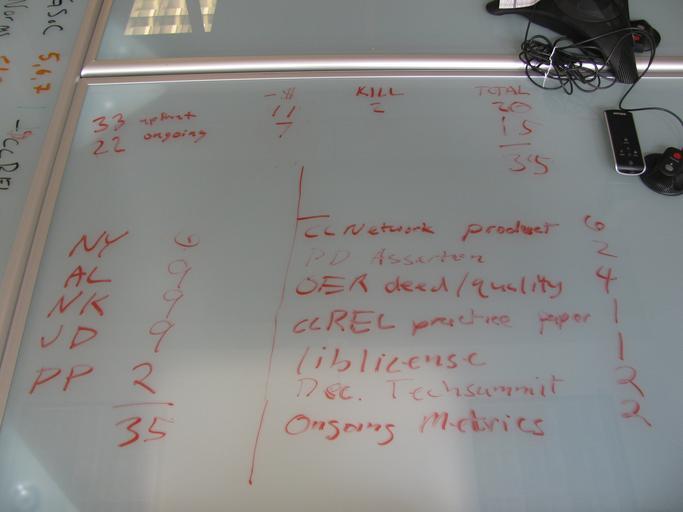 -:11 KILL TOTAL
33 upfront 11 2 20
22 ongoing 7 15
35
NY 6
AL 9
NK 9
JD 9
PP 2
35
CC Network product 6
PD Assertion 2
OER deed/quality 4
CCREL practice paper 1
liblicense 1
Dec. Techsummit 2
Ongoing Metrics 2
ASOC 5,6,7
Norms
CCREL